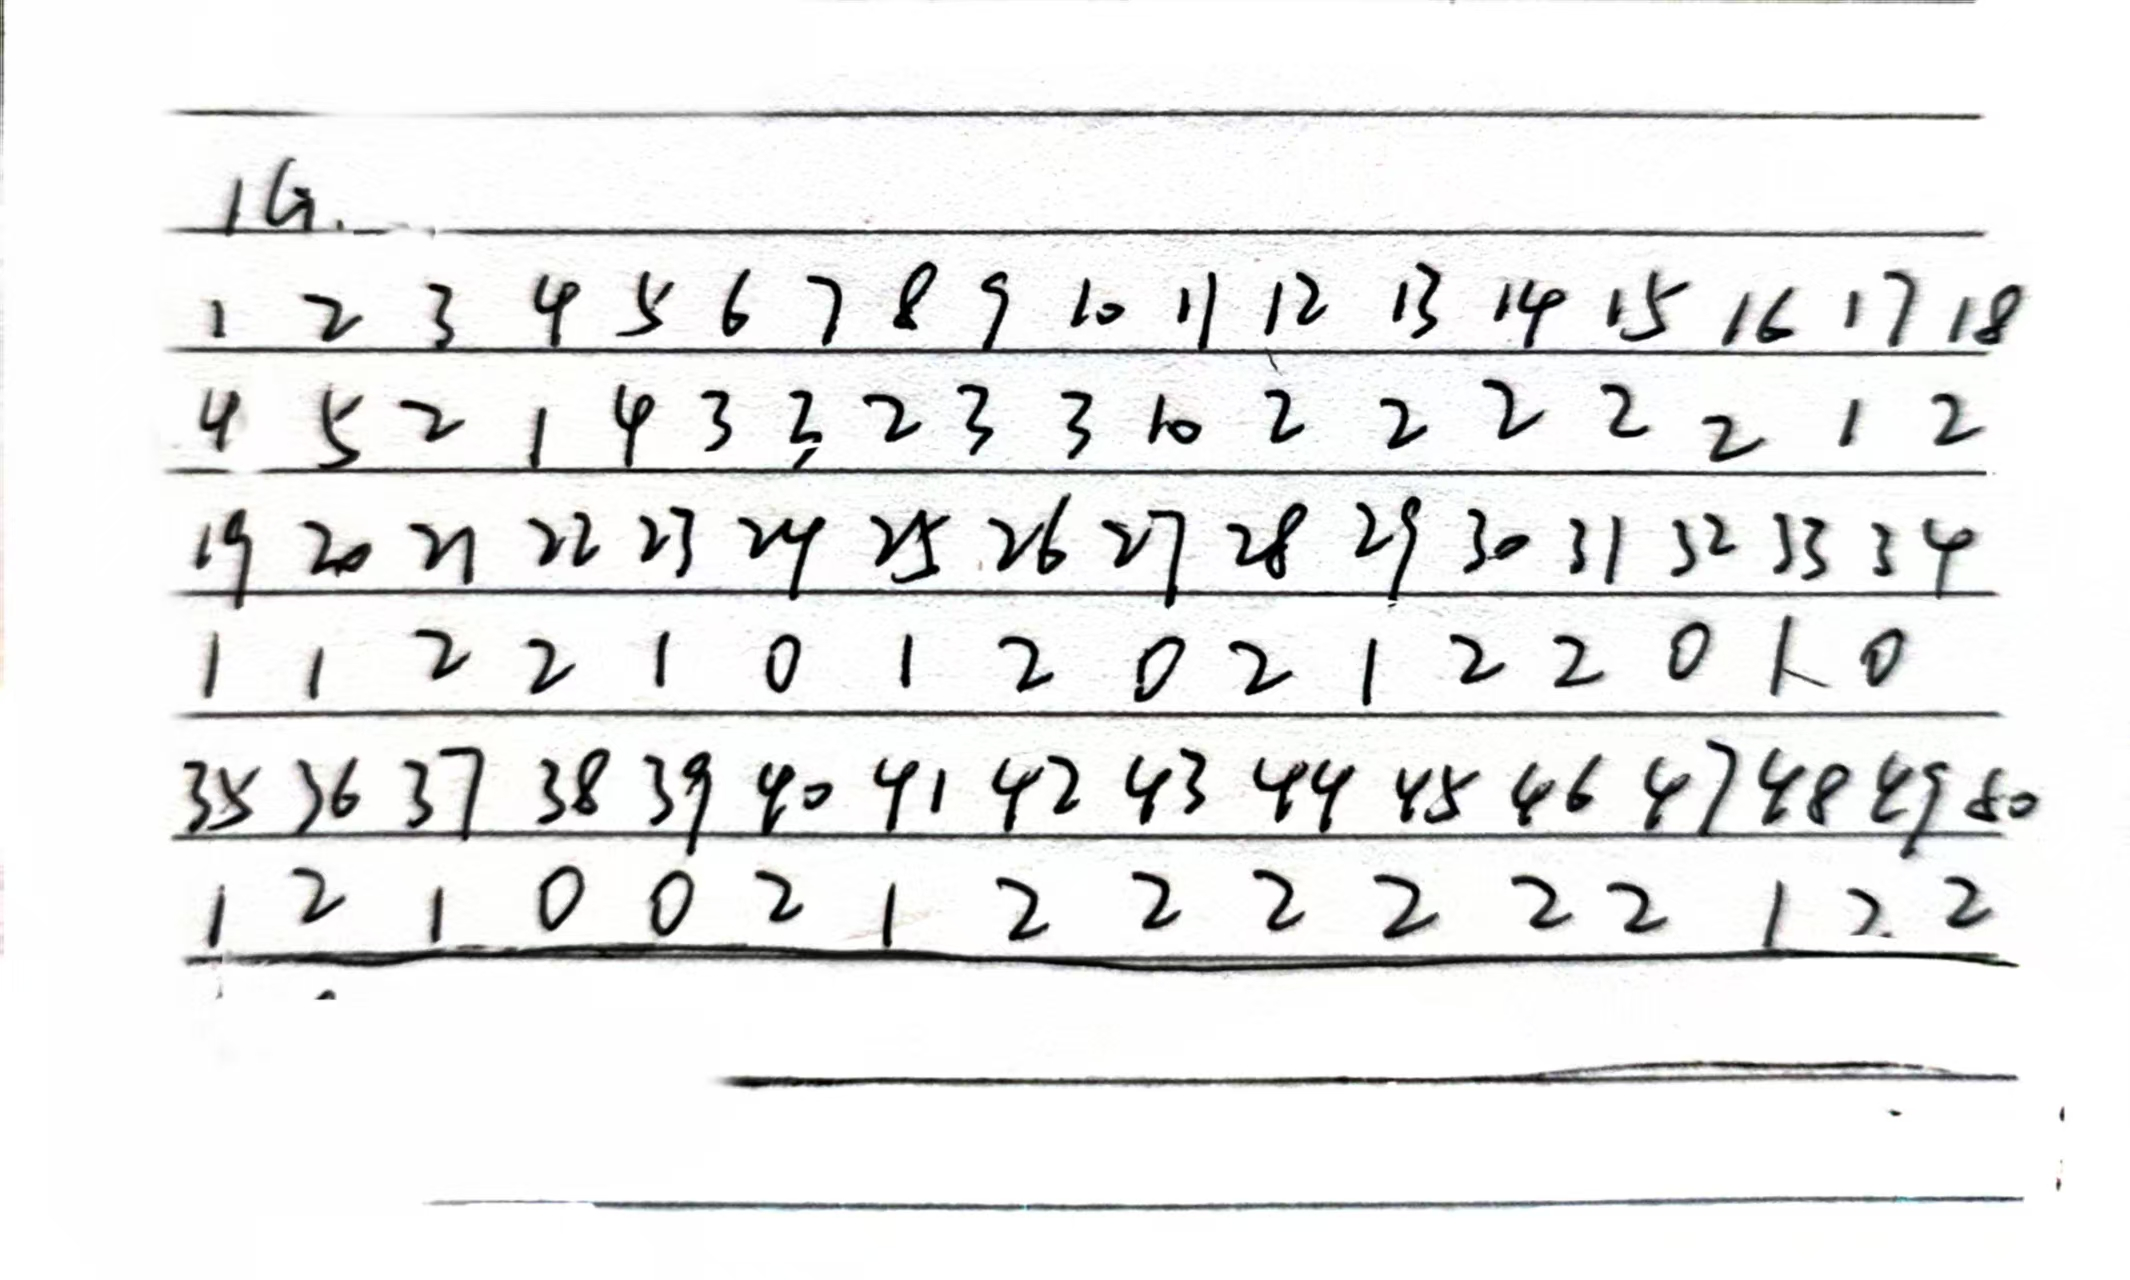 1G.
1 2 3 4 5 6 7 8 9 10 11 12 13 14 15 16 17 18
4 5 2 1 4 3 3 2 3 3 10 2 2 2 2 2 1 2
19 20 21 22 23 24 25 26 27 28 29 30 31 32 33 34
1 1 2 2 1 0 1 2 0 2 1 2 2 0 1 0
35 36 37 38 39 40 41 42 43 44 45 46 47 48 49 50
1 2 1 0 0 2 1 2 2 2 2 2 2 1 2 2